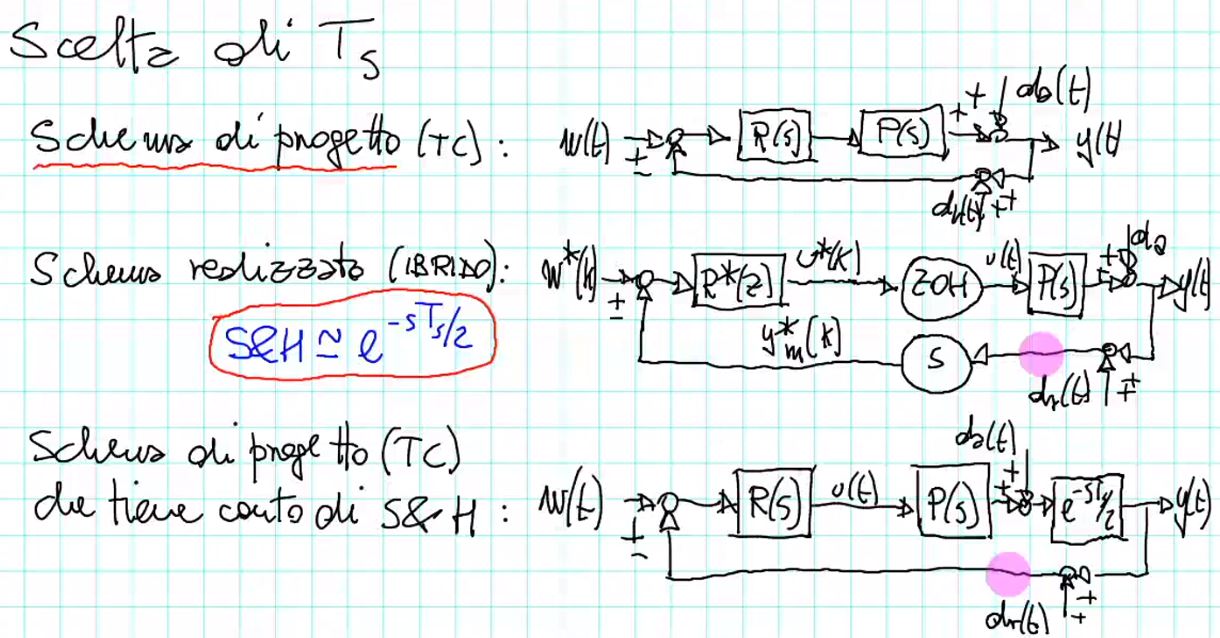 Scelta di Ts
Schema di progetto (TC): w(t) + - R(s) P(s) + + da(t) y(t
dr(t) + +
Schema realizzato (IBRIDO): w*(k) + - R*(z) u*(k) ZOH u(t) P(s) + + da y(t)
S&H ≃ e^-sTs/2
y*m(k) S dr(t) + +
Schema di progetto (TC)
che tiene conto di S&H : w(t) + - R(s) u(t) P(s) da(t) + + e^-sTs/2 y(t)
dr(t) + +